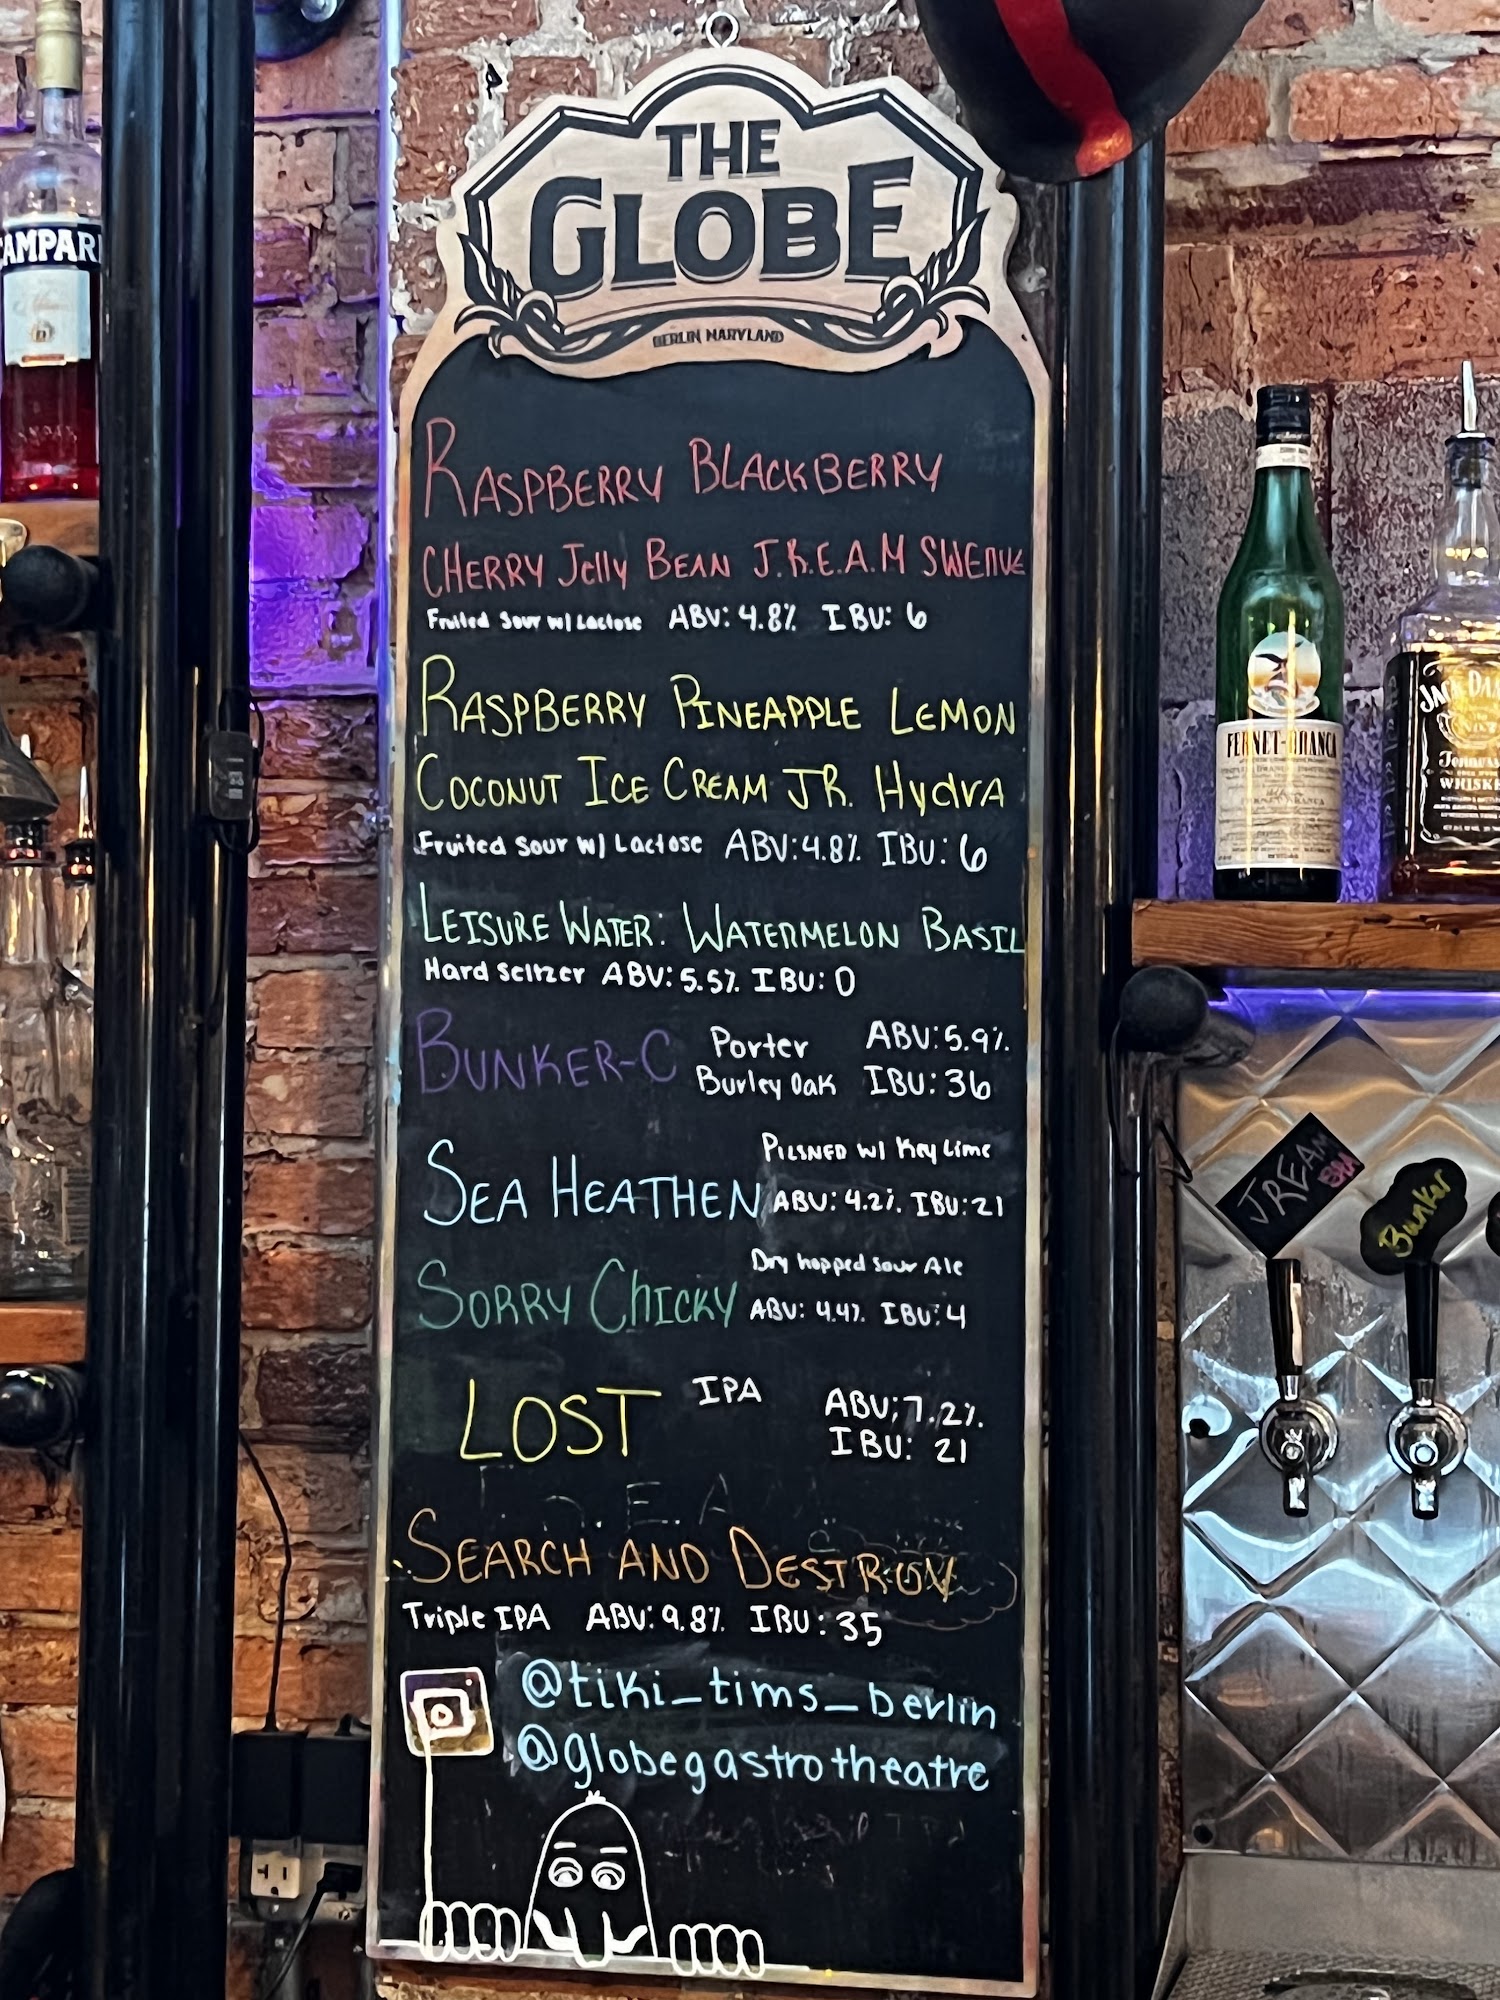 THE
GLOBE
BERLIN MARYLAND
RASPBERRY BLACKBERRY
CHERRY Jelly BEAN J.R.E.A.M SWENUE
Fruited Sour w/ Lactose ABV: 4.8% IBU: 6
RASPBERRY PINEAPPLE LEMON
COCONUT ICE CREAM JR. HydrA
Fruited Sour w/ Lactose ABV: 4.8% IBU: 6
LEISURE WATER: WATERMELON BASIL
Hard Seltzer ABV: 5.5% IBU: 0
BUNKER-C Porter ABV: 5.9%
Burley Oak IBU: 36
PILSNER w/ Key Lime
SEA HEATHEN ABV: 4.2% IBU: 21
Dry hopped sour Ale
SORRY CHICKY ABV: 4.4% IBU: 4
LOST IPA ABV: 7.2%
IBU: 21
SEARCH AND DESTROY
Triple IPA ABV: 9.8% IBU: 35
@tiki_tims_berlin
@globegastrotheatre
CAMPARI
FERNET-BRANCA
JACK DA
Tennessee
WHISKE
JREAM
Bunker